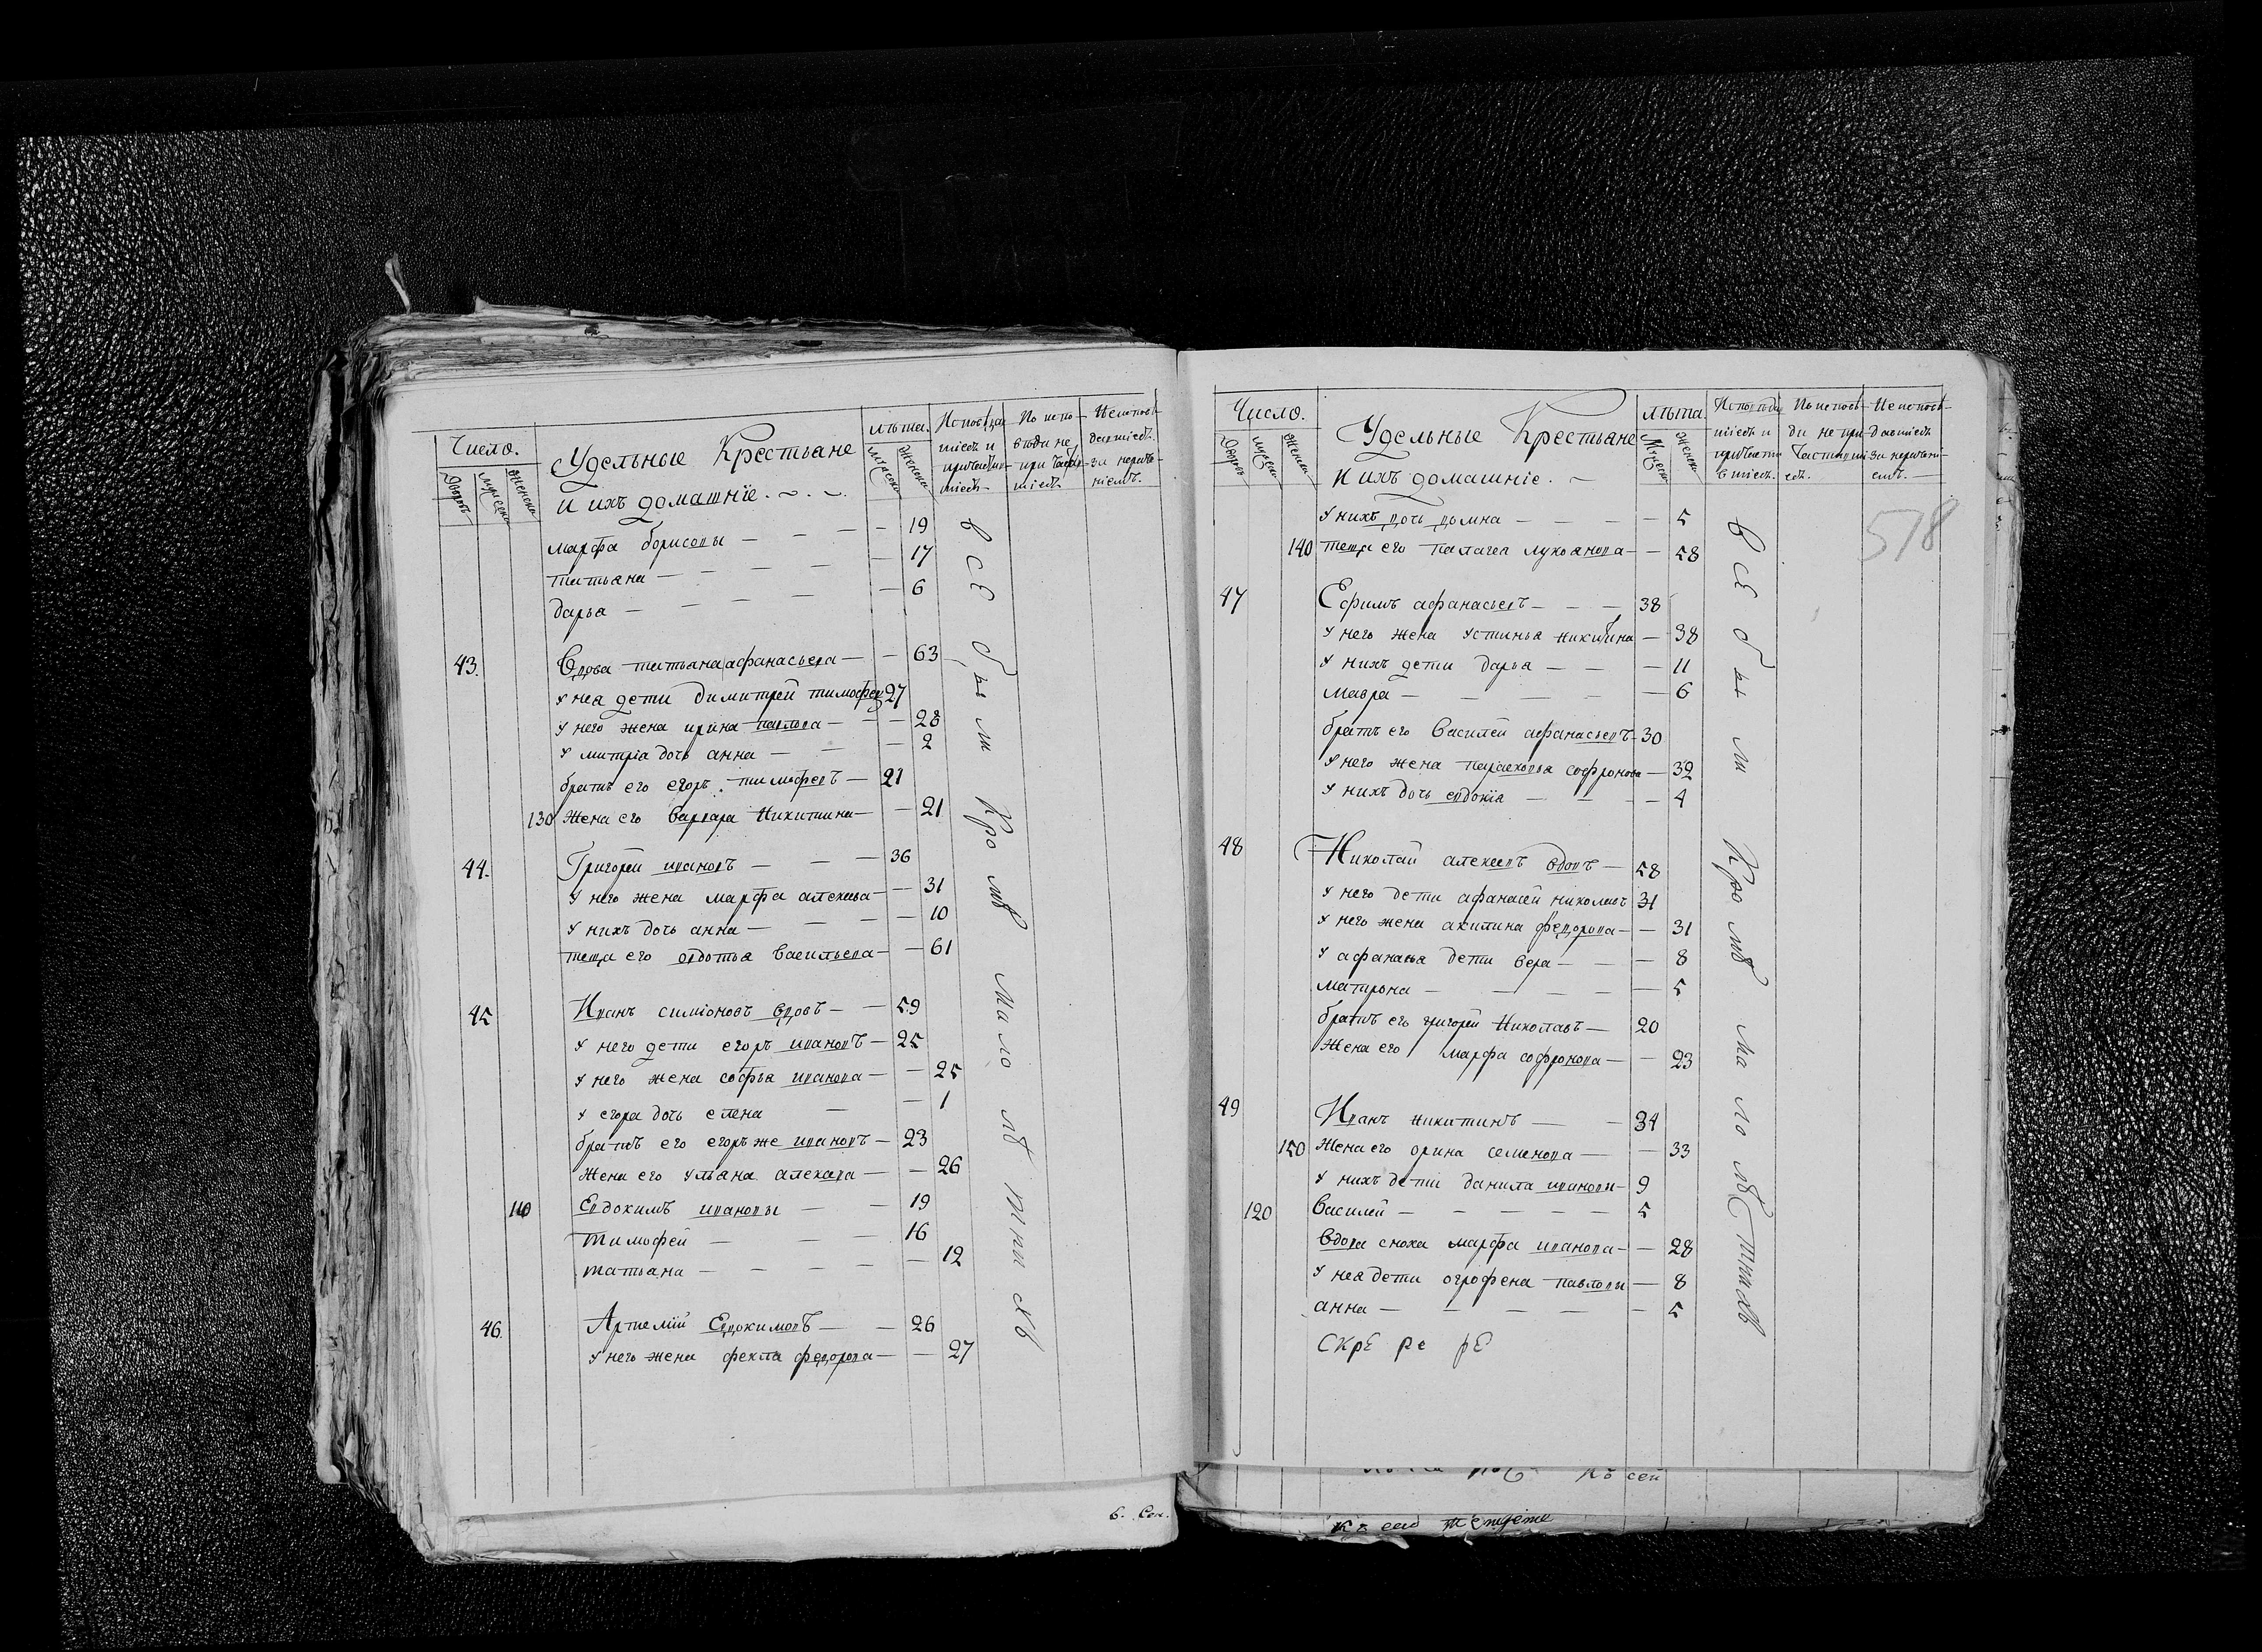 Число.
Удельные Крестьяне
и ихъ домашніе.
лѣта.
Дворовъ
мужеска
женска
мужеска
женска
марфа борисовы — — — — 19
татьяна — — — — — 17
дарья — — — — — 6
43. Вдова татьяна афанасьева — — 63
У нея дети димитрей тимофеев 27
У него жена ирина павлова — — 28
У митріа дочь анна — — — 2
братъ его егоръ тимофеевъ — 21
130 Жена его варвара Никитина — — 21
44. Григорей ивановъ — — — 36
У него жена марфа алексеева — — 31
У нихъ дочь анна — — — — 10
теща его овдотья васильева — — 61
45 Иванъ симіоновъ вдовъ — — 59
У него дети егоръ ивановъ — 25
У него жена софья иванова — — 25
У егора дочь елена — — 1
братъ его егоръ же ивановъ — 23
Жена его ульяна — — 26
110 Евдокимъ ивановы — — 19
тимофей — — — 16
татьяна — — — — — 12
46. Артемій Евдокимовъ — — 26
У него жена фекла федорова — — 27
все были кроме малолетнихъ
Число.
Удельные Крестьяне
И ихъ домашніе. —
лѣта.
Дворовъ
мужеска
женска
Мужеска
женска
578
У нихъ дочь домна — — — — 5
140 теща его палагея лукоянова — — 58
47 Ефимъ афанасьевъ — — — 38
У него жена устинья никитина — 38
У нихъ дети дарья — — — 11
мавра — — — — — 6
братъ его василей афанасьевъ — 30
У него жена парасковья софронова — 32
У нихъ дочь евдокіа — — — — 4
48 Николай алексеевъ вдовъ — 58
У него дети афанасей николаевъ 31
У него жена акилина федорова — — 31
У афанасья дети вера — — — 8
матрона — — — — — 5
братъ его григорей Николаевъ — 20
Жена его марфа софронова — — 23
49 Иванъ никитинъ — — 34
150 Жена его орина семенова — — 33
У нихъ дети данила ивановы — 9
120 василей — — — — — 5
вдова сноха марфа иванова — — 28
У нея дети огрофена павловы — 8
анна — — — — — 5
все были кроме малолетнихъ
скре ре ре